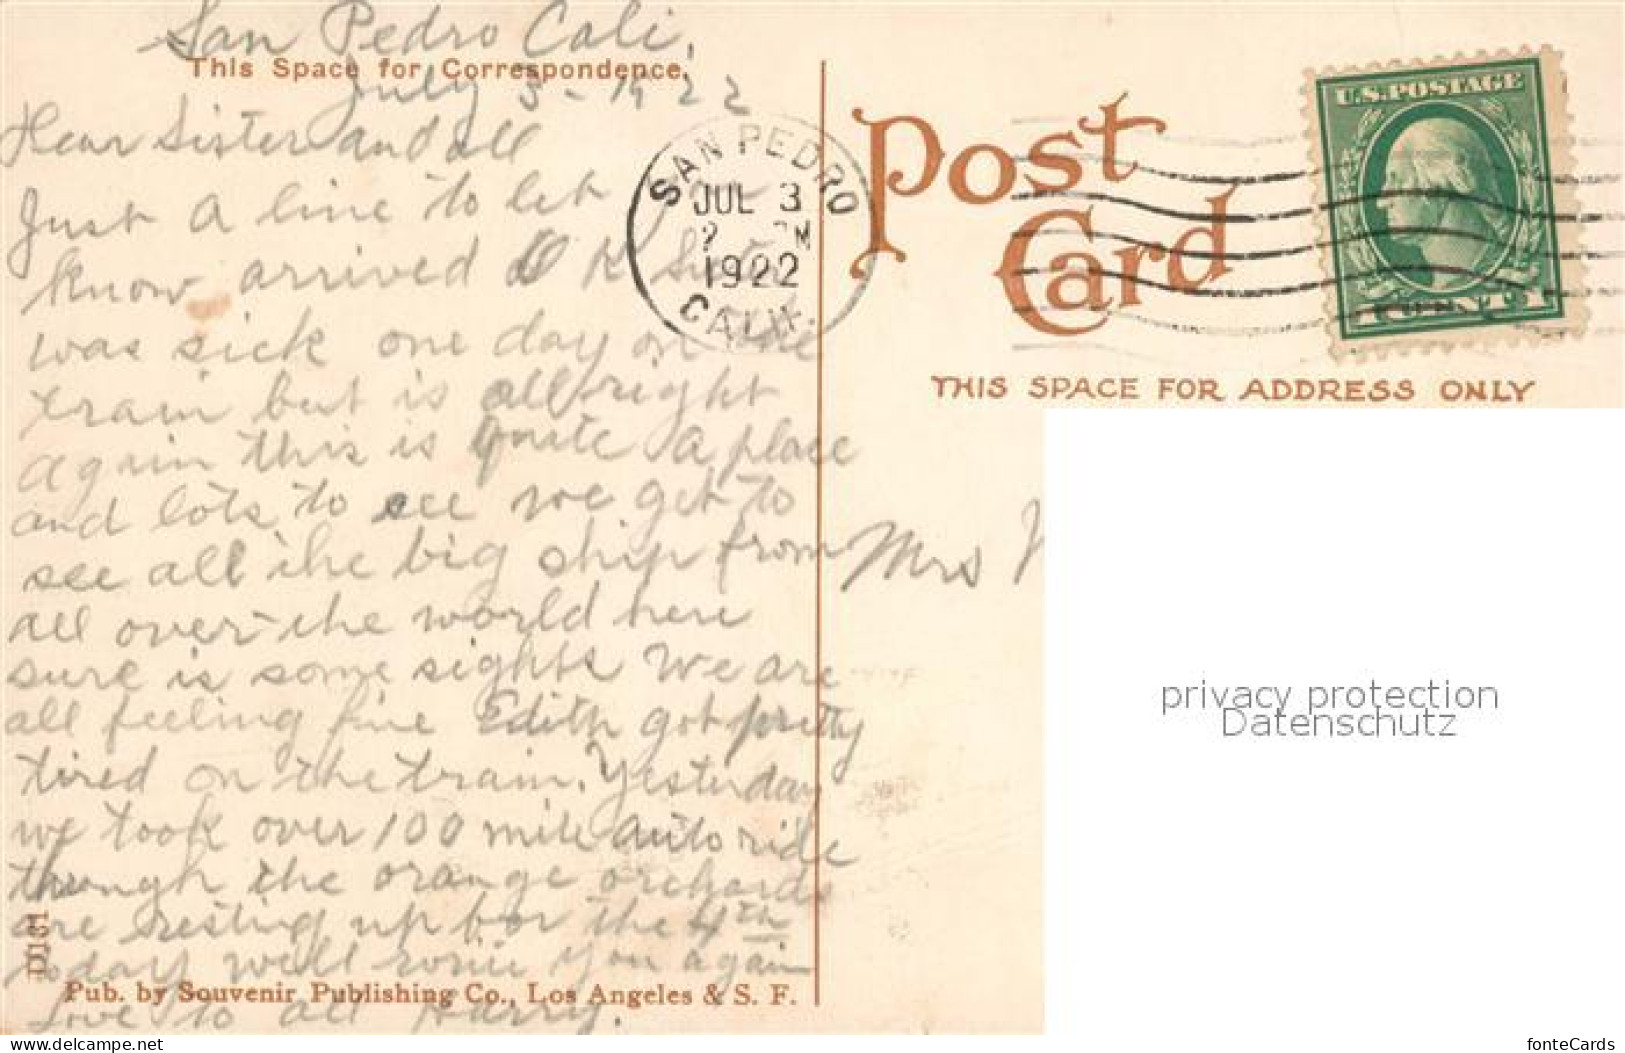 San Pedro Cali,
This Space for Correspondence.
July 3 - 1922
Dear Sister and all
Just a line to let you
know arrived O K
was sick one day on the
train but is all right
again this is quite a place
and lots to see we get to
see all the big ship from
all over the world here
sure is some sights We are
all feeling fine Edith got pretty
tired on the train. Yesterday
we took over 100 mile auto ride
through the orange orchards
are resting up for the 4th
today will write you again
Love to all Harry.
D161
Pub. by Souvenir Publishing Co., Los Angeles & S. F.
SAN PEDRO
JUL 3
1922
CALIF.
Post
Card
U.S.POSTAGE
1 CENT 1
THIS SPACE FOR ADDRESS ONLY
Mrs
privacy protection
Datenschutz
www.delcampe.net
fonteCards